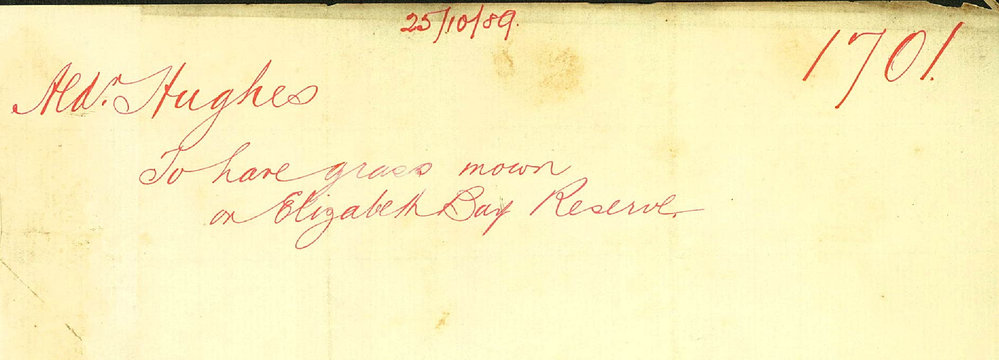 25/10/89.
1701.
Aldn. Hughes
To have grass mown
on Elizabeth Bay Reserve